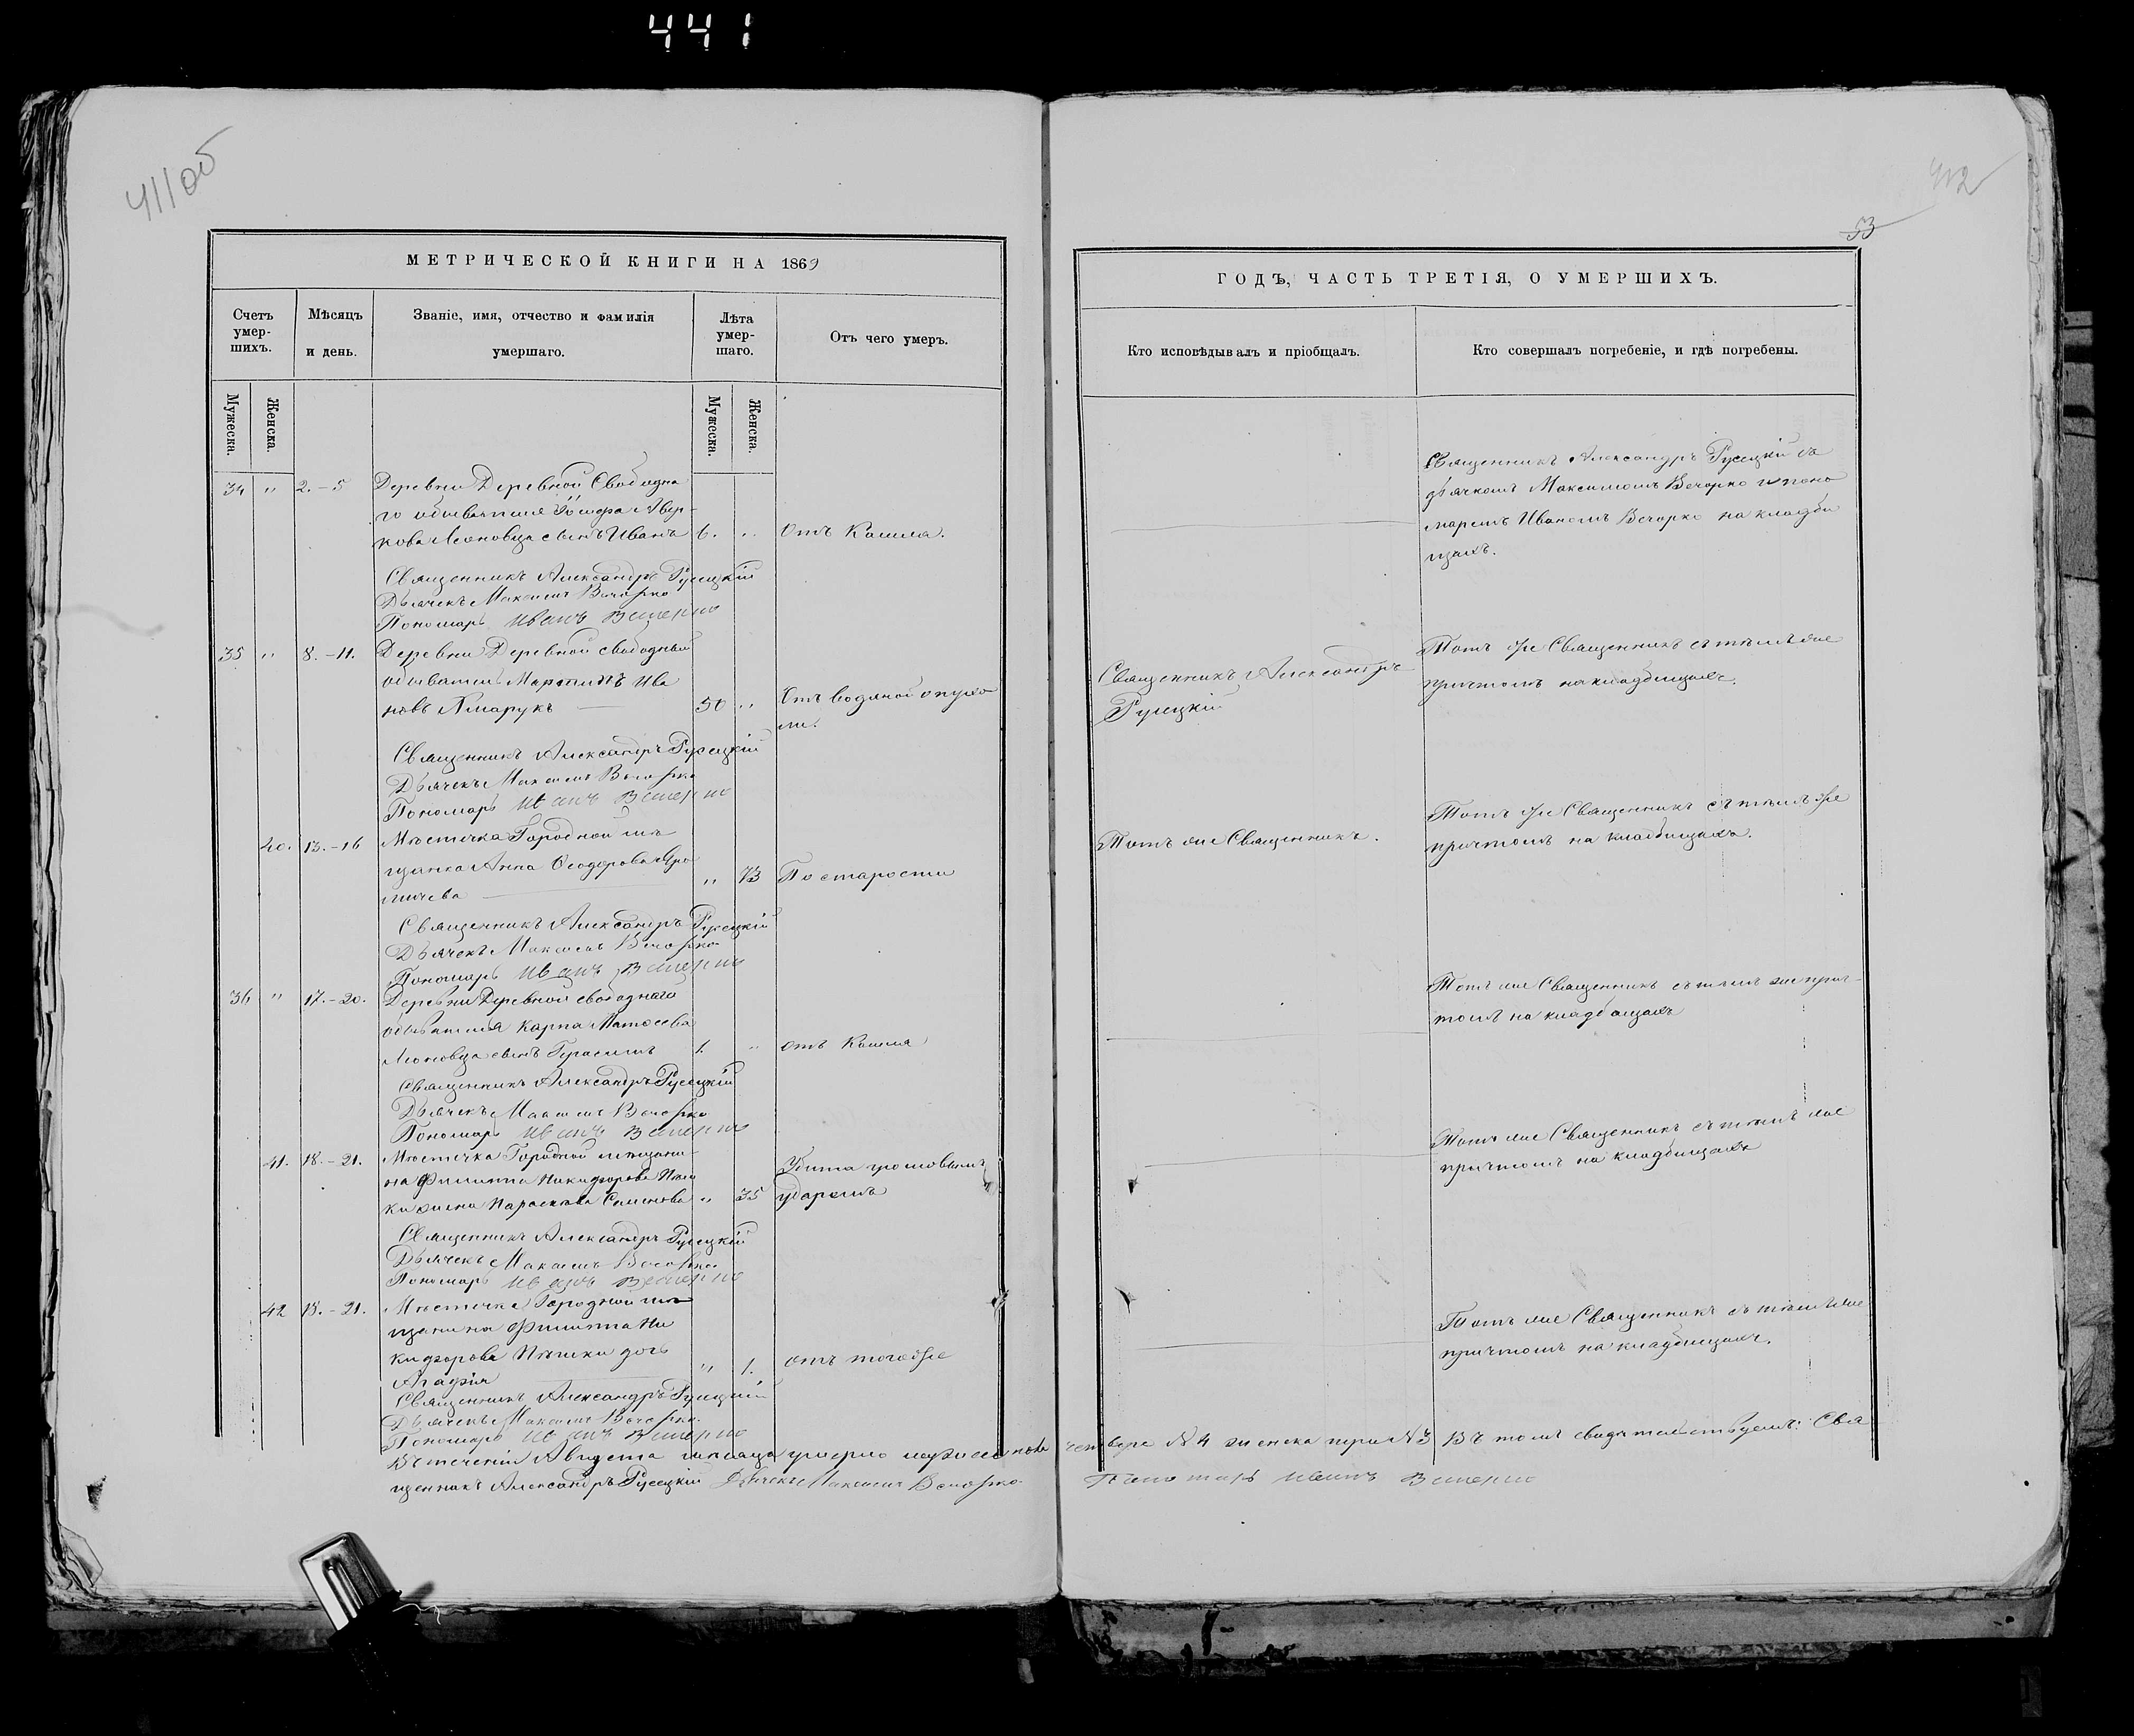 441
411об
412
53
МЕТРИЧЕСКОЙ КНИГИ НА 1869
Счетъ умер-
шихъ.
Мѣсяцъ
и день.
Званіе, имя, отчество и фамилія
умершаго.
Лѣта
умер-
шаго.
Отъ чего умеръ.
Мужеска.
Женска.
Мужеска.
Женска.
34 " 2.-5 Деревни Деревной Свободна
го обывателя Іосифа Авер-
кова Леоновца сынъ Иванъ 6. " Отъ Кашля.
Священникъ Александръ Русецкій
Дьячекъ Максимъ Вечорко
Пономарь Иванъ Вечерко
35 " 8.-11. Деревни Деревной свободный
обыватель Мартинъ Ива
новъ 50 " Отъ водяной опухо
ли.
Священникъ Александръ Русецкій
Дьячекъ Максимъ Вечорко
Пономарь Иванъ Вечерко
40. 13.-16 Мѣстечка Городной мѣ
щанка Анна Феодорова
" 73 По старости
Священникъ Александръ Русецкій
Дьячекъ Максимъ Вечорко
Пономарь Иванъ Вечерко
36 " 17.-20. Деревни Деревной свободнаго
обывателя Карпа Матѳеева
Леоновца сынъ Герасимъ 1. " отъ Кашля
Священникъ Александръ Русецкій
Дьячекъ Максимъ Вечорко
Пономарь Иванъ Вечерко
41. 18.-21. Мѣстечка Городной мѣщани-
на Филиппа Никифорова Пѣш
ки жена Параскева Семенова " 35 Убита громовымъ
ударомъ
Священникъ Александръ Русецкій
Дьячекъ Максимъ Вечорко
Пономарь Иванъ Вечерко
42 18.-21. Мѣстечка Городной мѣ
щанина Филиппа Ни
кифорова Пѣшки дочь
Агафія " 1. отъ тогоже
Священникъ Александръ Русецкій
Дьячекъ Максимъ Вечорко
Пономарь Иванъ Вечерко
Въ теченіи Августа мѣсяца умерло мужеска пола четверо №4 женска трое №3 Въ томъ свидѣтельствуемъ: Свя
щенникъ Александръ Русецкій Дьячекъ Максимъ Вечорко Пономарь Иванъ Вечерко
ГОДЪ, ЧАСТЬ ТРЕТІЯ, О УМЕРШИХЪ.
Кто исповѣдывалъ и пріобщалъ.
Кто совершалъ погребеніе, и гдѣ погребены.
Священникъ Александръ Русецкій съ
дьячкомъ Максимомъ Вечорко и поно
маремъ Иваномъ Вечорко на кладби
щахъ.
Священникъ Александръ
Русецкій
Тотъ же Священникъ съ тѣмъ же
причтомъ на кладбищахъ.
Тотъ же Священникъ.
Тотъ же Священникъ съ тѣмъ же
причтомъ на кладбищахъ.
Тотъ же Священникъ съ тѣмъ же прич-
томъ на кладбищахъ
Тотъ же Священникъ съ тѣмъ же
причтомъ на кладбищахъ
Тотъ же Священникъ съ тѣмъ же
причтомъ на кладбищахъ.